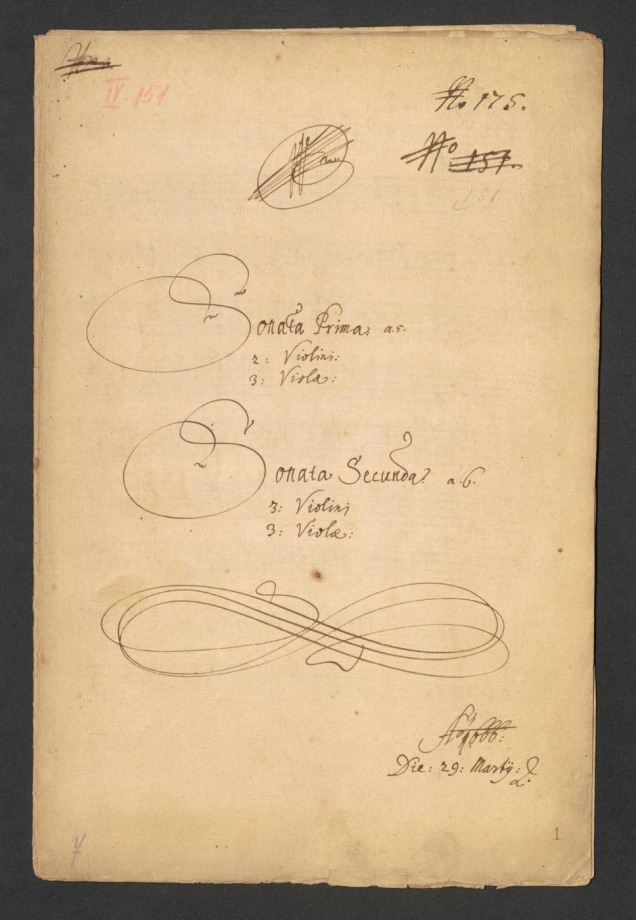 IV. 151
No 175.
No 151.
151
Sonata Prima: a 5.
2: Violini:
3: Violæ:
Sonata Secunda: a: 6.
3: Violini
3: Violæ:
Die: 29: Martij:
1